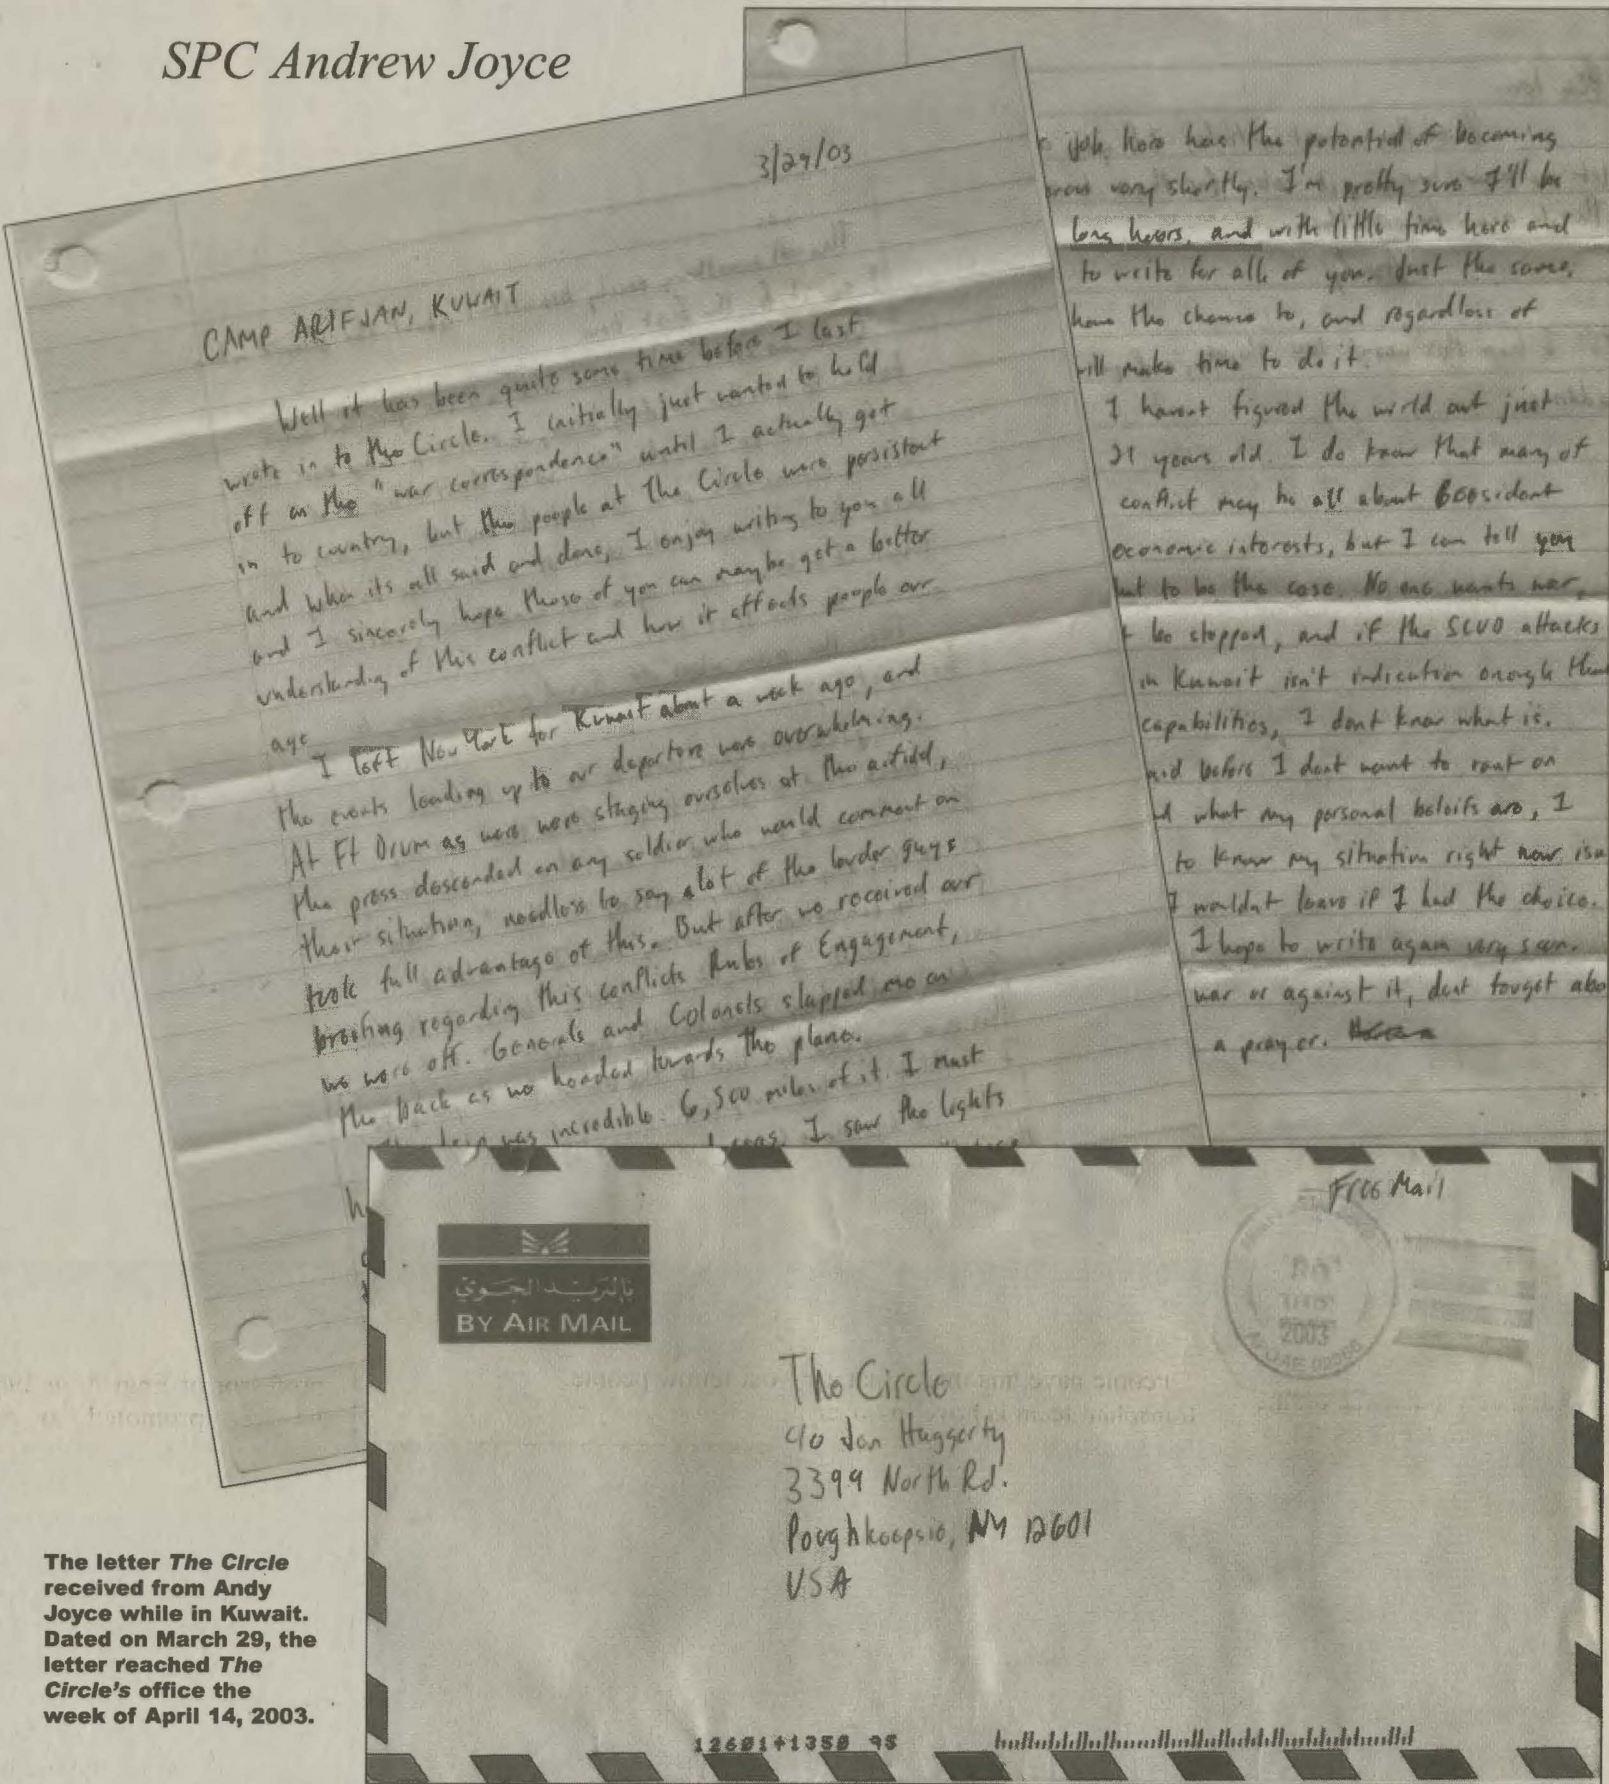 SPC Andrew Joyce
3/29/03
CAMP ARIFJAN, KUWAIT
Well it has been quite some time before I last
wrote in to the Circle. I initially just wanted to hold
off on the "war correspondence" until I actually got
in to country, but the people at The Circle were persistant
and when its all said and done, I enjoy writing to you all
and I sincerely hope those of you can maybe get a better
understanding of this conflict and how it affects people our
age
I left New York for Kuwait about a week ago, and
the events leading up to our departure were overwhelming.
At Ft Drum as were were staging ourselves at the airfield,
the press descended on any soldier who would comment on
their situation, needless to say alot of the louder guys
took full advantage of this. But after we received our
briefing regarding this conflicts Rules of Engagement,
we were off. Generals and Colonels slapped me on
the back as we headed towards the plane.
was incredible. 6,500 miles of it. I must
I saw the lights
job here has the potential of becoming
very shortly. I'm pretty sure I'll be
long hours, and with little time here and
to write for all of you. Just the same,
have the chance to, and regardless of
will make time to do it.
I havent figured the world out just
21 years old. I do know that many of
conflict may be all about
economic interests, but I can tell you
to be the case. No one wants war,
be stopped, and if the SCUD attacks
in Kuwait isn't indication enough
capabilities, I dont know what is.
before I dont want to rant on
what my personal beleifs are, I
to know my situation right now
I wouldnt leave if I had the choice.
I hope to write again very soon.
war or against it, dont forget
a prayer.
Free Mail
بالبريد الجوي
BY AIR MAIL
2003
The Circle
c/o Jon Haggerty
3399 North Rd.
Poughkeepsie, NY 12601
USA
12601+1350 95
The letter The Circle
received from Andy
Joyce while in Kuwait.
Dated on March 29, the
letter reached The
Circle's office the
week of April 14, 2003.